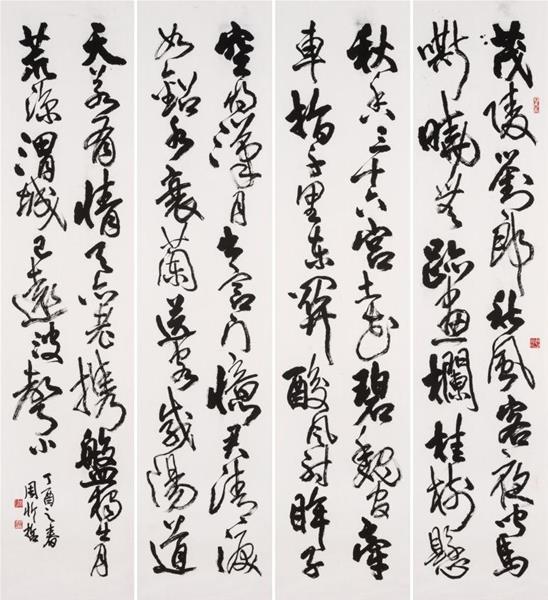 茂陵劉郎秋風客夜聞馬
嘶曉無跡畫欄桂樹懸
秋香三十六宮土花碧魏官牽
車指千里東關酸風射眸子
空將漢月出宮門憶君清淚
如鉛水衰蘭送客咸陽道
天若有情天亦老攜盤獨出月
荒涼渭城已遠波聲小
丁酉之春
周